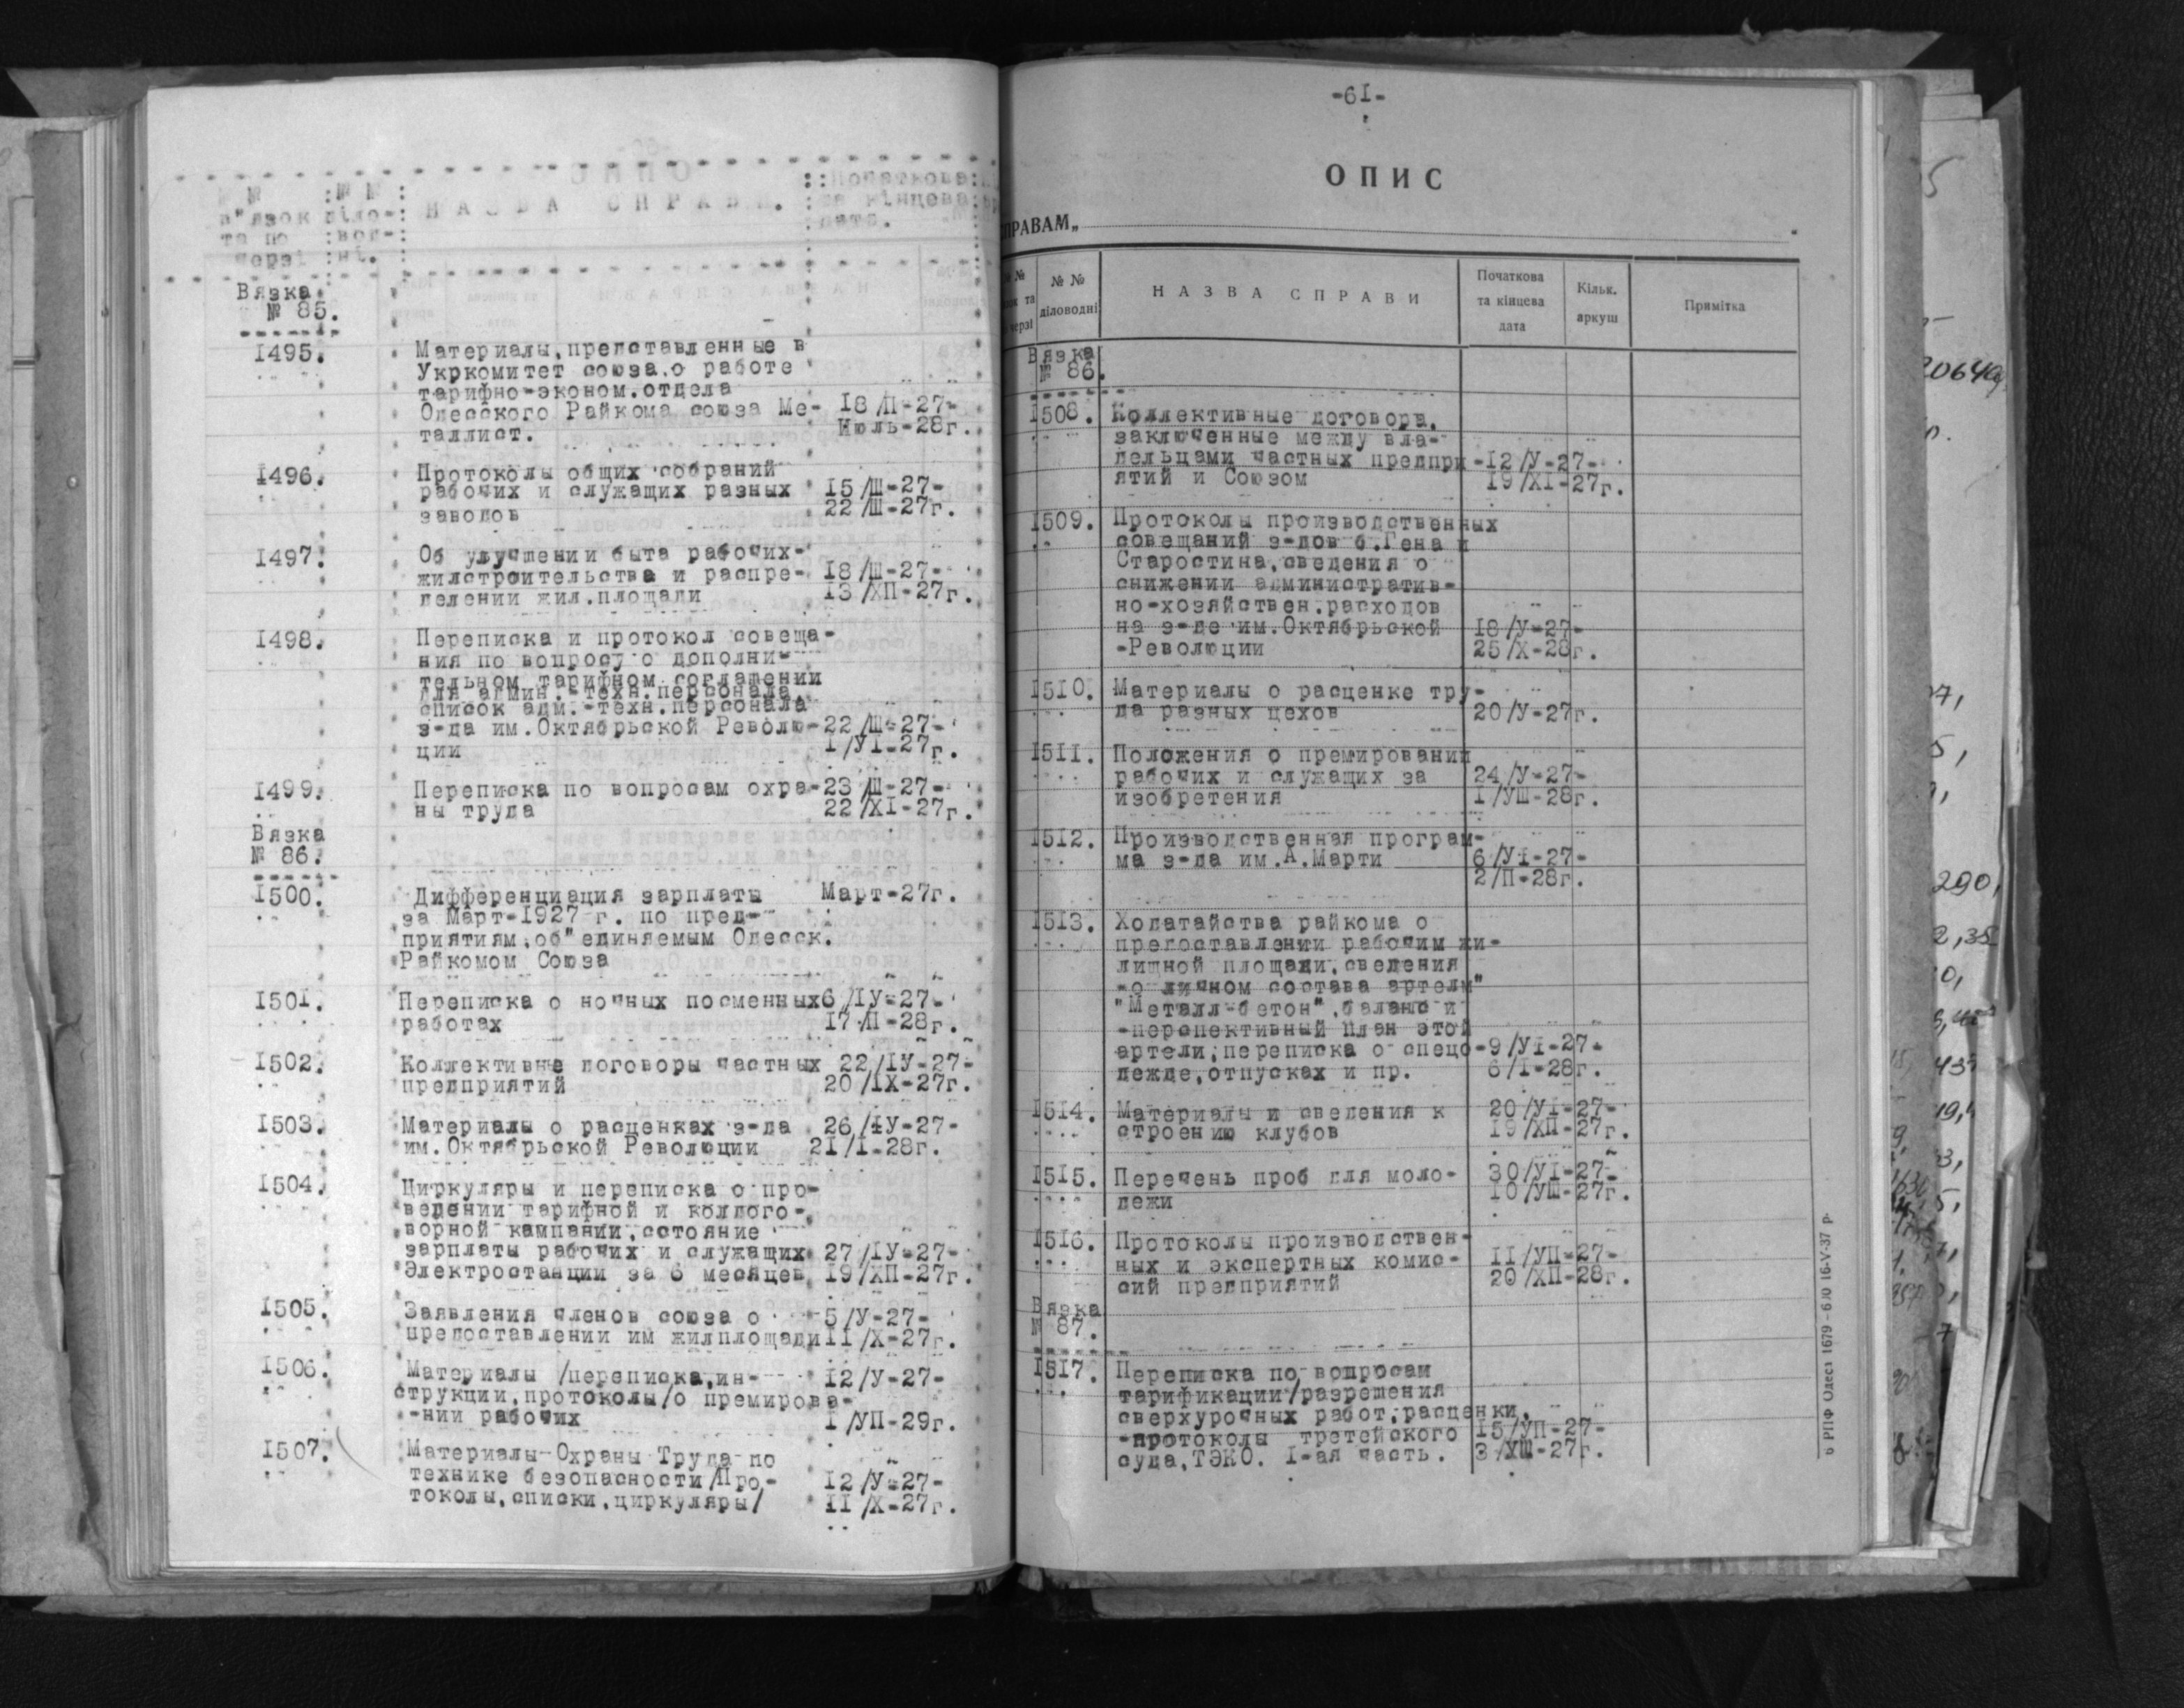 № №
в"язок
та по
черзі
№ №
діло-
вод-
ні.
НАЗВА СПРАВИ.
Початкова
та кінцева
дата.
Вязка
№ 85.
1495. Материалы, представленные в
Укркомитет союза, о работе
тарифно-эконом.отдела
Одесского Райкома союза Ме- 18/П-27-
таллист. Июль-28г.
1496. Протоколы общих собраний
рабочих и служащих разных 15/Ш-27-
заводов 22/Ш-27г.
1497. Об улучшении быта рабочих-
жилстроительства и распре- 18/Ш-27-
делении жил.площади 13/ХП-27г.
1498. Переписка и протокол совеща-
ния по вопросу о дополни-
тельном тарифном соглашении
для админ.-техн.персонала,
список адм.-техн.персонала
з-да им.Октябрьской Револю-22/Ш-27-
ции 1/УІ-27г.
1499. Переписка по вопросам охра-23/Ш-27-
ны труда 22/ХІ-27г.
Вязка
№ 86.
1500. Дифференциация зарплаты Март-27г.
за Март-1927 г. по пред-
приятиям, об"единяемым Одесск.
Райкомом Союза
1501. Переписка о ночных посменных 6/ІУ-27-
работах 17/П-28г.
1502. Коллективные договоры частных 22/ІУ-27-
предприятий 20/ІХ-27г.
1503. Материалы о расценках з-да 26/ІУ-27-
им.Октябрьской Революции 21/І-28г.
1504. Циркуляры и переписка о про-
ведении тарифной и колдого-
ворной кампании, состояние
зарплаты рабочих и служащих 27/ІУ-27-
Электростанции за 6 месяцев 19/ХП-27г.
1505. Заявления членов союза о 5/У-27-
предоставлении им жилплощади 11/Х-27г.
1506. Материалы /переписка,ин- 12/У-27-
струкции,протоколы/о премирова-
-нии рабочих 1/УП-29г.
1507. Материалы Охраны Труда по
технике безопасности/Про- 12/У-27-
токолы,списки,циркуляры/ 11/Х-27г.
-61-
ОПИС
СПРАВАМ„
№ №
№ №
діловодні
НАЗВА СПРАВИ
Початкова
та кінцева
дата
Кільк.
аркуш
Примітка
Вязка
№ 86.
1508. Коллективные договора,
заключенные между вла-
дельцами частных предпри-12/У-27-
ятий и Союзом 19/ХІ-27г.
1509. Протоколы производственных
совещаний з-дов б.Гена и
Старостина,сведения о
снижении административ-
но-хозяйствен.расходов
на з-де им.Октябрьской 18/У-27-
-Революции 25/Х-28г.
1510. Материалы о расценке тру-
да разных цехов 20/У-27г.
1511. Положения о премировании
рабочих и служащих за 24/У-27-
изобретения 1/УШ-28г.
1512. Производственная програм-
ма з-да им.А.Марти 6/УІ-27-
2/П-28г.
1513. Ходатайства райкома о
предоставлении рабочим жи-
лищной площади,сведения
-о личном состава артели"
"Металл-бетон",баланс и
-перспективный план этой
артели,переписка о спецо-9/УІ-27-
дежде,отпусках и пр. 6/І-28г.
1514. Материалы и сведения к 20/УІ-27-
строению клубов 19/ХП-27г.
1515. Перечень проб для моло- 30/УІ-27-
дежи 10/УШ-27г.
1516. Протоколы производствен-
ных и экспертных комис- 11/УП-27-
сий предприятий 20/ХП-28г.
Вязка
№ 87.
1517. Переписка по вопросам
тарификации/разрешения
сверхурочных работ,расценки,
-протоколы третейского 15/УП-27-
суда,ТЭКО. 1-ая часть. 3/ХШ-27г.
6 РПФ Одеса 1679 – 6.0 16-V-37 р.